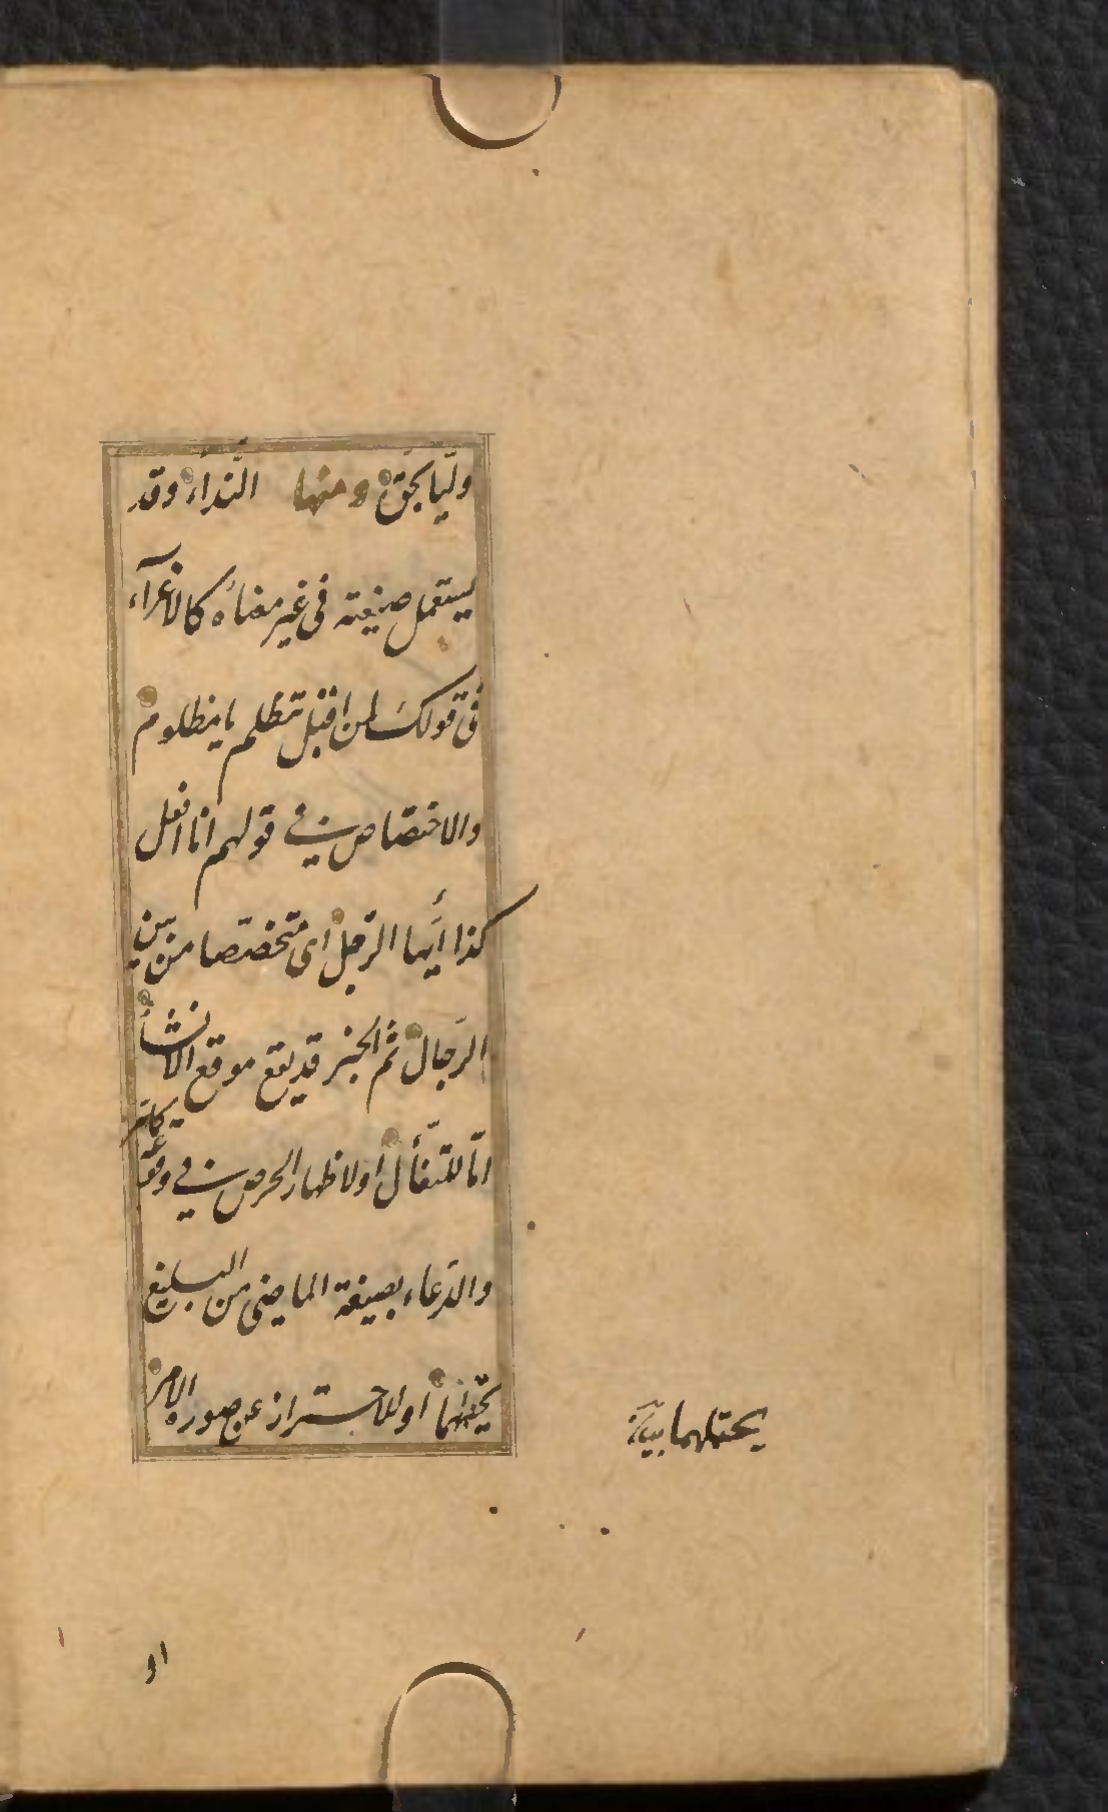 وليا بحق ومنها النداء وقد
يستعمل صيغته فى غير معناه كالاغراء
فى قولك لمن اقبل يتظلم يا مظلوم
والاختصاص فى قولهم انا افعل
كذا ايها الرجل اى متخصصا من بين
الرجال ثم الخبر قد يقع موقع الانشاء
اما للتفأل او لاظهار الحرص فى وقوعه كما مر
والدعاء بصيغة الماضى من البليغ
يحتملهما او للاحتراز عن صورة الامر
يحتملهما
او